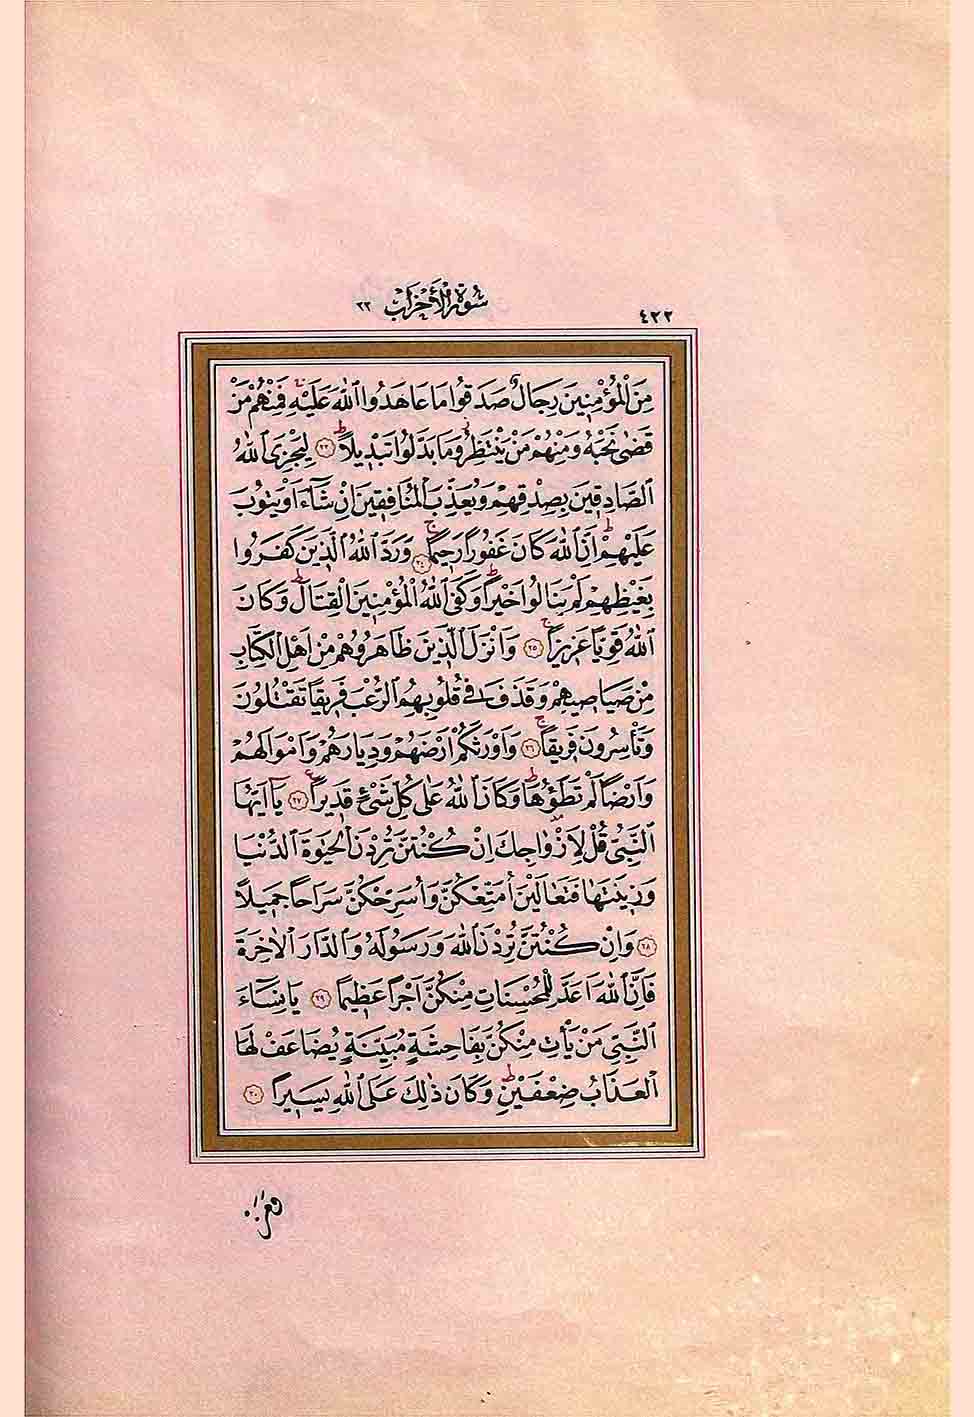 ٤٢٢ سُورَةُ الْأَحْزَابِ ٣٣
مِنَ الْمُؤْمِنِينَ رِجَالٌ صَدَقُوا مَا عَاهَدُوا اللّٰهَ عَلَيْهِ فَمِنْهُمْ مَنْ
قَضٰى نَحْبَهُ وَمِنْهُمْ مَنْ يَنْتَظِرُ وَمَا بَدَّلُوا تَبْدِيلًا ﴿٢٣﴾ لِيَجْزِيَ اللّٰهُ
الصَّادِقِينَ بِصِدْقِهِمْ وَيُعَذِّبَ الْمُنَافِقِينَ اِنْ شَاءَ اَوْ يَتُوبَ
عَلَيْهِمْ اِنَّ اللّٰهَ كَانَ غَفُورًا رَحِيمًا ﴿٢٤﴾ وَرَدَّ اللّٰهُ الَّذِينَ كَفَرُوا
بِغَيْظِهِمْ لَمْ يَنَالُوا خَيْرًا وَكَفَى اللّٰهُ الْمُؤْمِنِينَ الْقِتَالَ وَكَانَ
اللّٰهُ قَوِيًّا عَزِيزًا ﴿٢٥﴾ وَاَنْزَلَ الَّذِينَ ظَاهَرُوهُمْ مِنْ اَهْلِ الْكِتَابِ
مِنْ صَيَاصِيهِمْ وَقَذَفَ فِي قُلُوبِهِمُ الرُّعْبَ فَرِيقًا تَقْتُلُونَ
وَتَأْسِرُونَ فَرِيقًا ﴿٢٦﴾ وَاَوْرَثَكُمْ اَرْضَهُمْ وَدِيَارَهُمْ وَاَمْوَالَهُمْ
وَاَرْضًا لَمْ تَطَؤُهَا وَكَانَ اللّٰهُ عَلٰى كُلِّ شَيْءٍ قَدِيرًا ﴿٢٧﴾ يَا اَيُّهَا
النَّبِيُّ قُلْ لِاَزْوَاجِكَ اِنْ كُنْتُنَّ تُرِدْنَ الْحَيٰوةَ الدُّنْيَا
وَزِينَتَهَا فَتَعَالَيْنَ اُمَتِّعْكُنَّ وَاُسَرِّحْكُنَّ سَرَاحًا جَمِيلًا
﴿٢٨﴾ وَاِنْ كُنْتُنَّ تُرِدْنَ اللّٰهَ وَرَسُولَهُ وَالدَّارَ الْاٰخِرَةَ
فَاِنَّ اللّٰهَ اَعَدَّ لِلْمُحْسِنَاتِ مِنْكُنَّ اَجْرًا عَظِيمًا ﴿٢٩﴾ يَا نِسَاءَ
النَّبِيِّ مَنْ يَأْتِ مِنْكُنَّ بِفَاحِشَةٍ مُبَيِّنَةٍ يُضَاعَفْ لَهَا
الْعَذَابُ ضِعْفَيْنِ وَكَانَ ذٰلِكَ عَلَى اللّٰهِ يَسِيرًا ﴿٣٠﴾